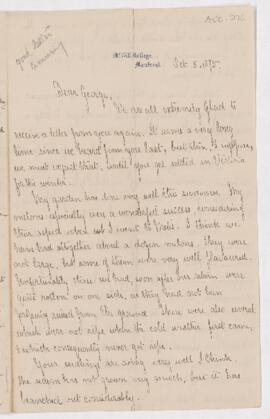 Acc. 276
McGill College,
Montreal.
Oct. 5. 1875.
Dear George,
We are all extremely glad to
receive a letter from you again. It seems a very long
time since we heard from you last, but then I suppose,
we must expect that, until you get settled in Victoria
for the winter.
My garden has done very well this summer. My
melons especially were a wonderful success, considering
their aspect when I went to Métis. I think we
have had altogether about a dozen melons. They were
not large, but some of them were very well flavoured.
Unfortunately those we had, soon after our return were
quite rotten on one side, as they had not been
properly raised from the ground. There were also several
which were not ripe when the cold weather first came,
& which consequently never got ripe.
Your seedlings are doing very well I think.
The acorn has not grown very much, but it has
branched out considerably.